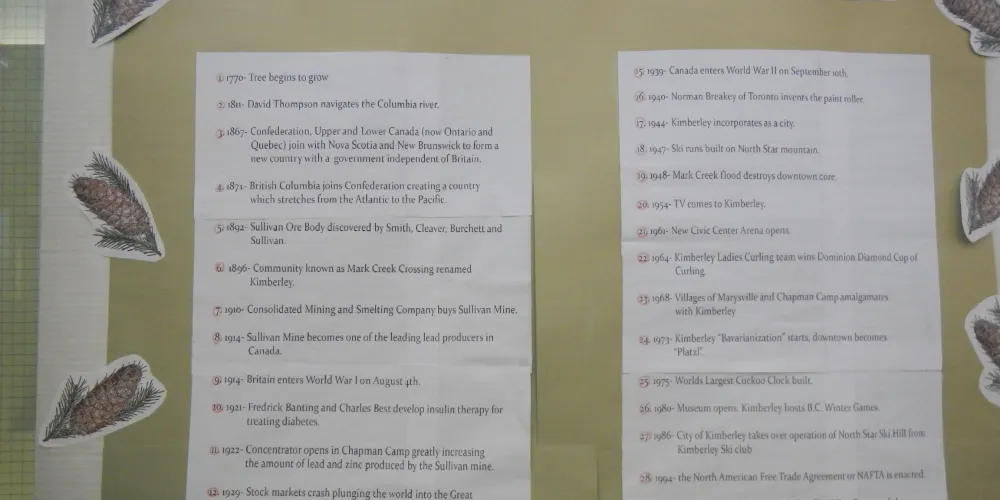 1. 1770- Tree begins to grow
2. 1811- David Thompson navigates the Columbia river.
3. 1867- Confederation, Upper and Lower Canada (now Ontario and
Quebec) join with Nova Scotia and New Brunswick to form a
new country with a government independent of Britain.
4. 1871- British Columbia joins Confederation creating a country
which stretches from the Atlantic to the Pacific.
5. 1892- Sullivan Ore Body discovered by Smith, Cleaver, Burchett and
Sullivan.
6. 1896- Community known as Mark Creek Crossing renamed
Kimberley.
7. 1910- Consolidated Mining and Smelting Company buys Sullivan Mine.
8. 1914- Sullivan Mine becomes one of the leading lead producers in
Canada.
9. 1914- Britain enters World War I on August 4th.
10. 1921- Fredrick Banting and Charles Best develop insulin therapy for
treating diabetes.
11. 1922- Concentrator opens in Chapman Camp greatly increasing
the amount of lead and zinc produced by the Sullivan mine.
12. 1929- Stock markets crash plunging the world into the Great
15. 1939- Canada enters World War II on September 10th.
16. 1940- Norman Breakey of Toronto invents the paint roller.
17. 1944- Kimberley incorporates as a city.
18. 1947- Ski runs built on North Star mountain.
19. 1948- Mark Creek flood destroys downtown core.
20. 1954- TV comes to Kimberley.
21. 1961- New Civic Center Arena opens.
22. 1964- Kimberley Ladies Curling team wins Dominion Diamond Cup of
Curling.
23. 1968- Villages of Marysville and Chapman Camp amalgamates
with Kimberley
24. 1973- Kimberley "Bavarianization" starts, downtown becomes
"Platzl".
25. 1975- Worlds Largest Cuckoo Clock built.
26. 1980- Museum opens. Kimberley hosts B.C. Winter Games.
27. 1986- City of Kimberley takes over operation of North Star Ski Hill from
Kimberley Ski club
28. 1994- the North American Free Trade Agreement or NAFTA is enacted.